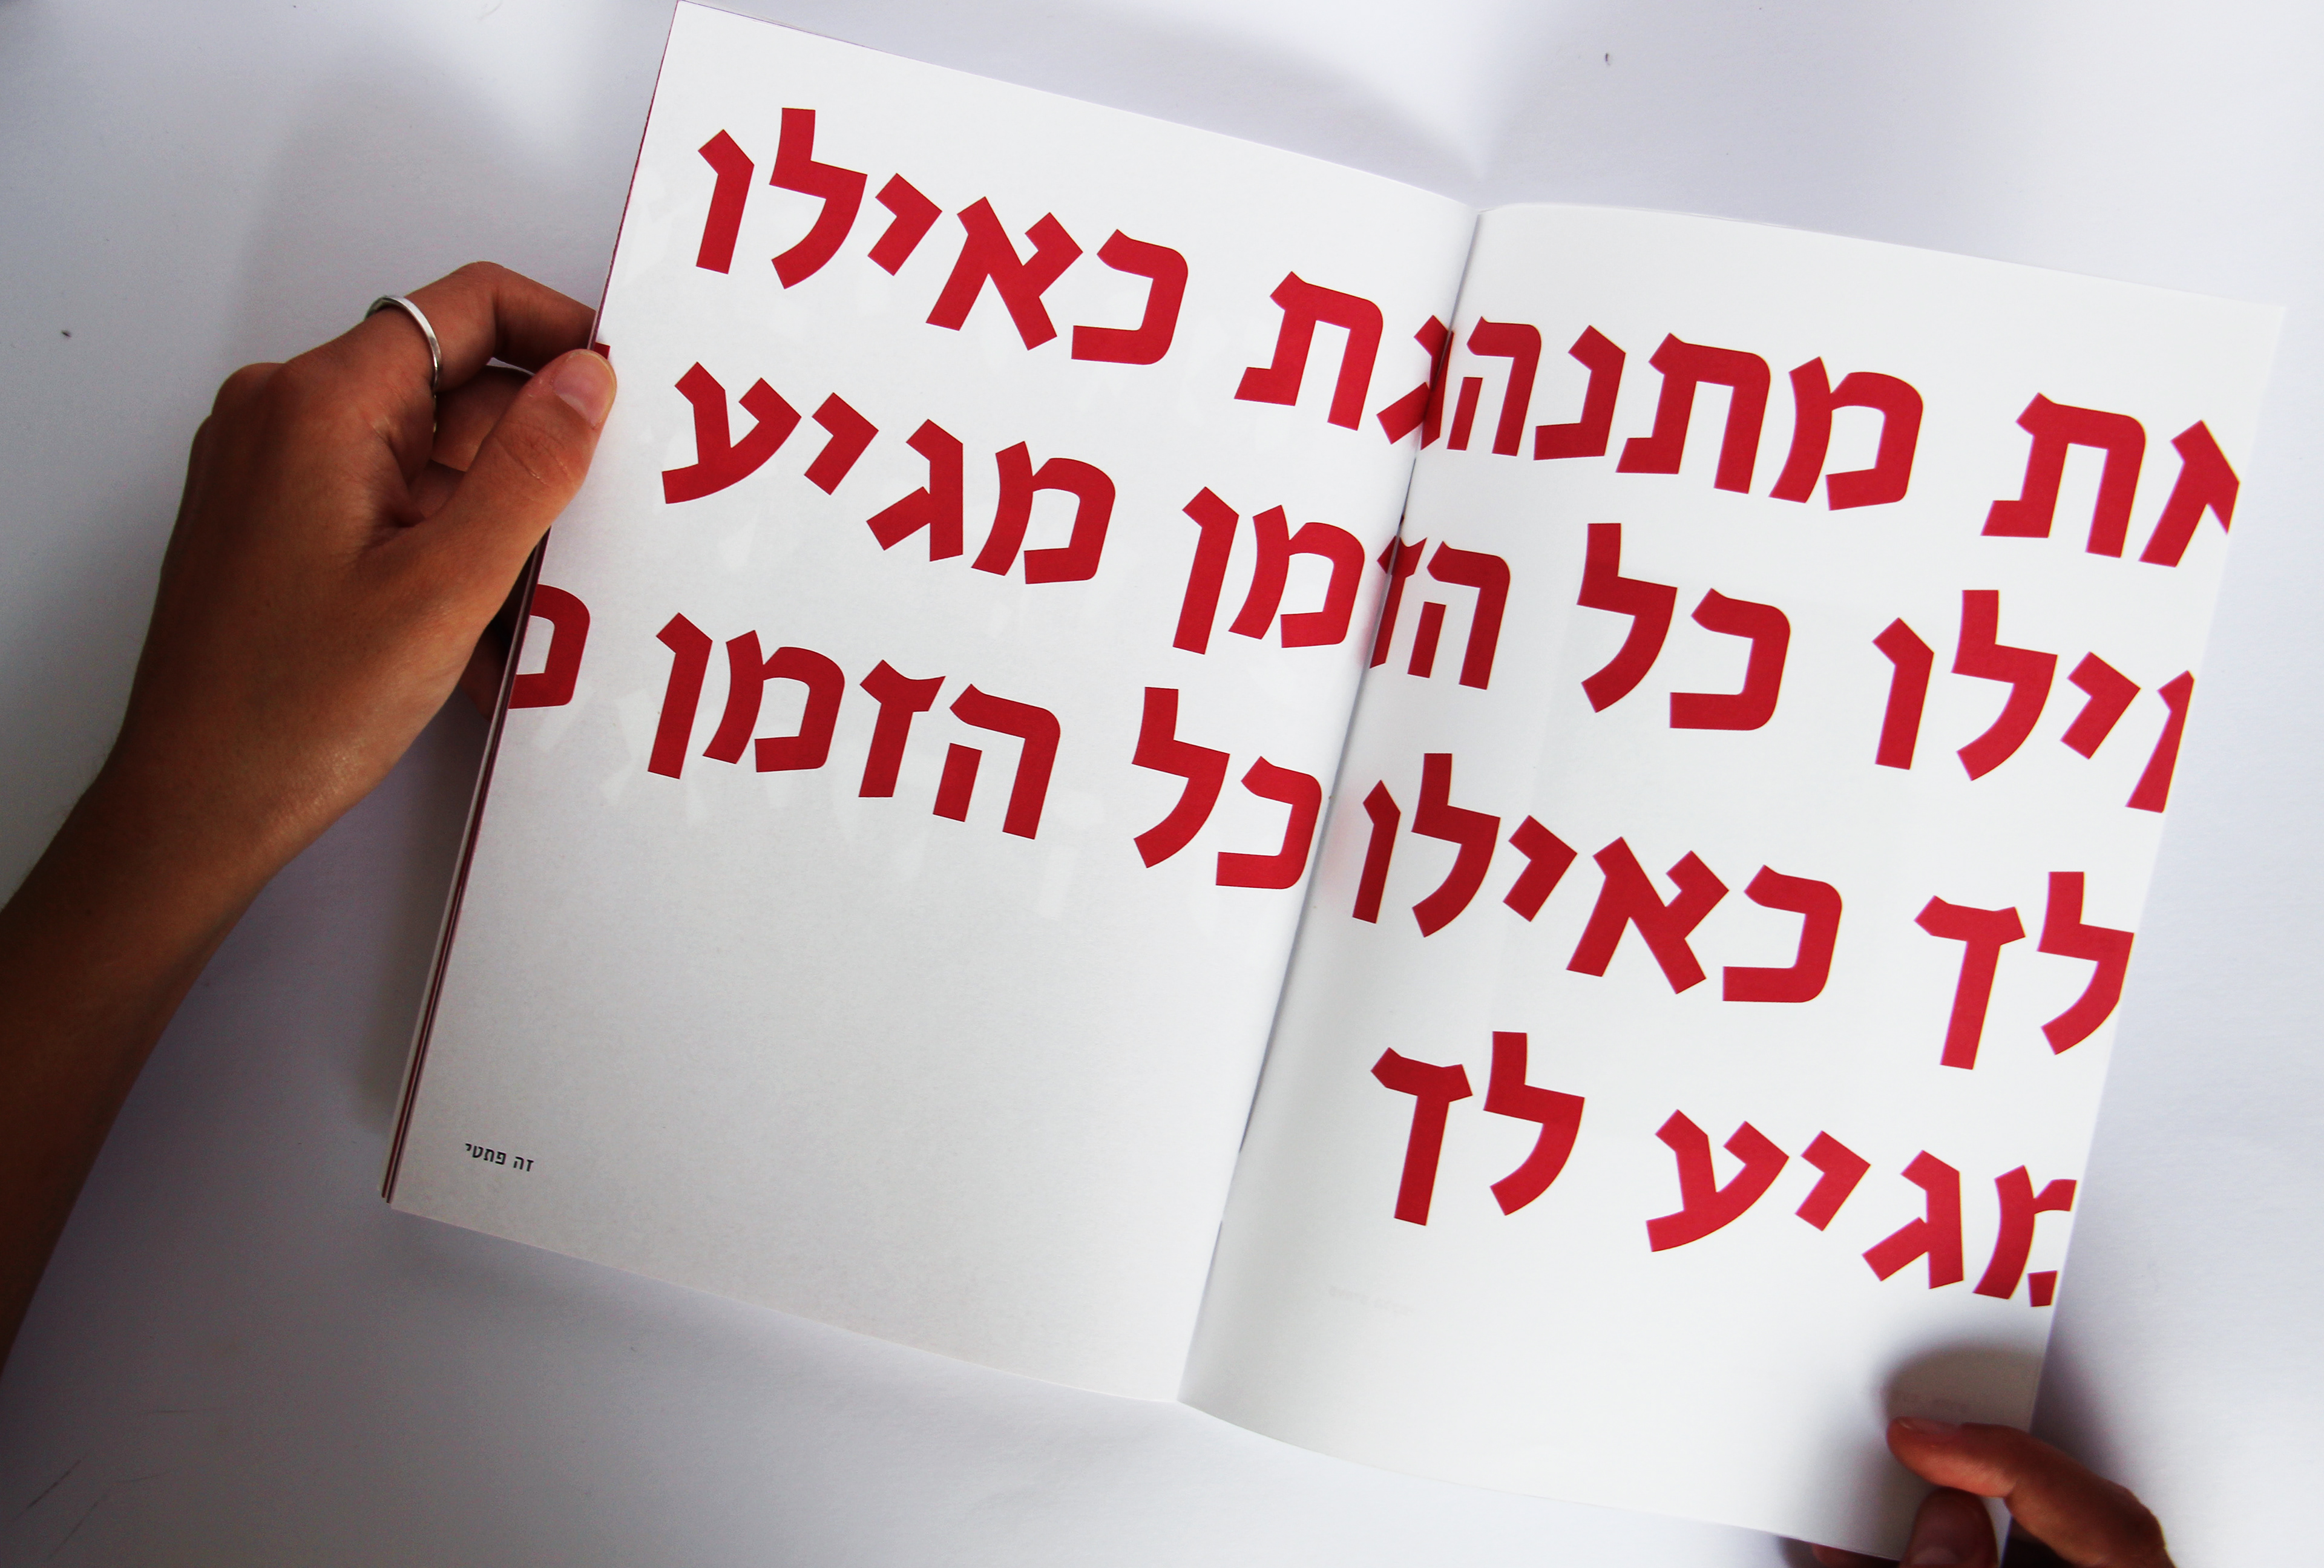 את מתנהגת כאילו
אילו כל הזמן מגיע
לך כאילו כל הזמן
מגיע לך
זה פתטי